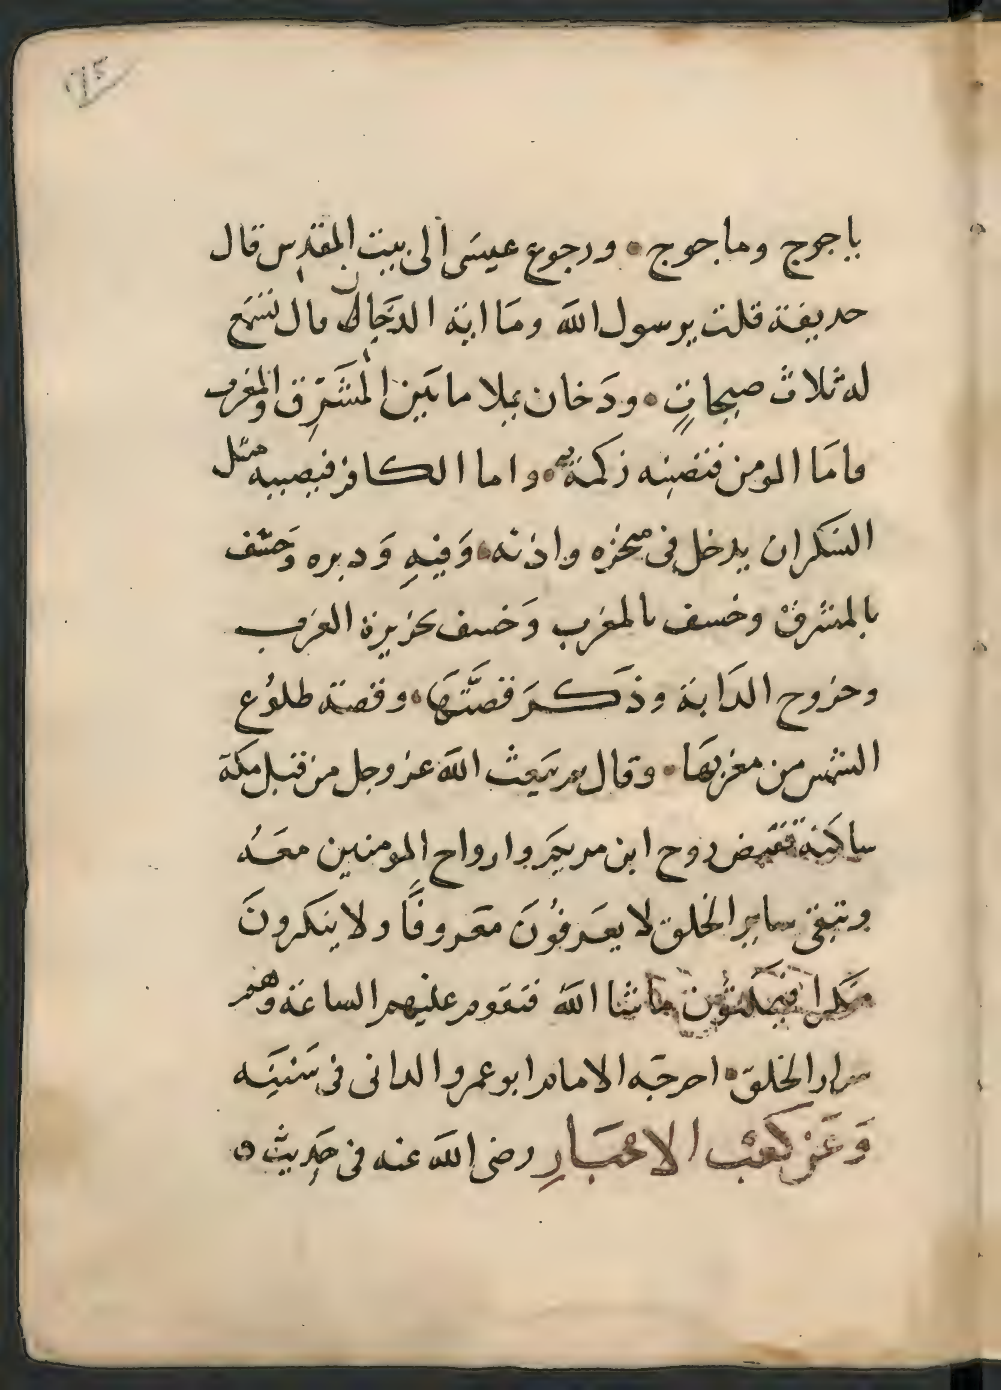 ١٦٥
ياجوج وماجوج ۰ ورجوع عيسَى الى بيت المقدس قال
حذيفة قلت يرسول الله ومَا اية الدجَال قال تسمع
له ثلاث صيحاتٍ ۰ ودَخان يملا ما بَين المشَرِق والمغرب
فامَا المومن فتصيبه زكمة ۰ واما الكافر فيصيبه مثل
السَكران يدخل فى منخره واذنه ۰ وَفيهِ وَدبره وَخسَف
بالمشرق وخسف بالمغرب وَخسف بجزيرة العَرب
وخروج الدَابة وذَكَر قصَّتهَا ۰ وقصة طلوُع
الشمس من مغربهَا ۰ وقال يبَعث الله عز وجل من قبل مكة
ساكنة فتقبض روح ابن مريَم وارواح المومنين معَهُ
وتبقى ساير الخلق لا يعَرفوُنَ معَروفًا ولا ينكرونَ
منكرا فيمكثون ما شا الله فتقوم عليهم الساعة وهم
شرار الخلق ۰ اخرجَه الامام ابو عمرو الدانى فى سَننِه
وَعَن كعَب الاحبَارِ رضى الله عنه فى حَدِيث ۰